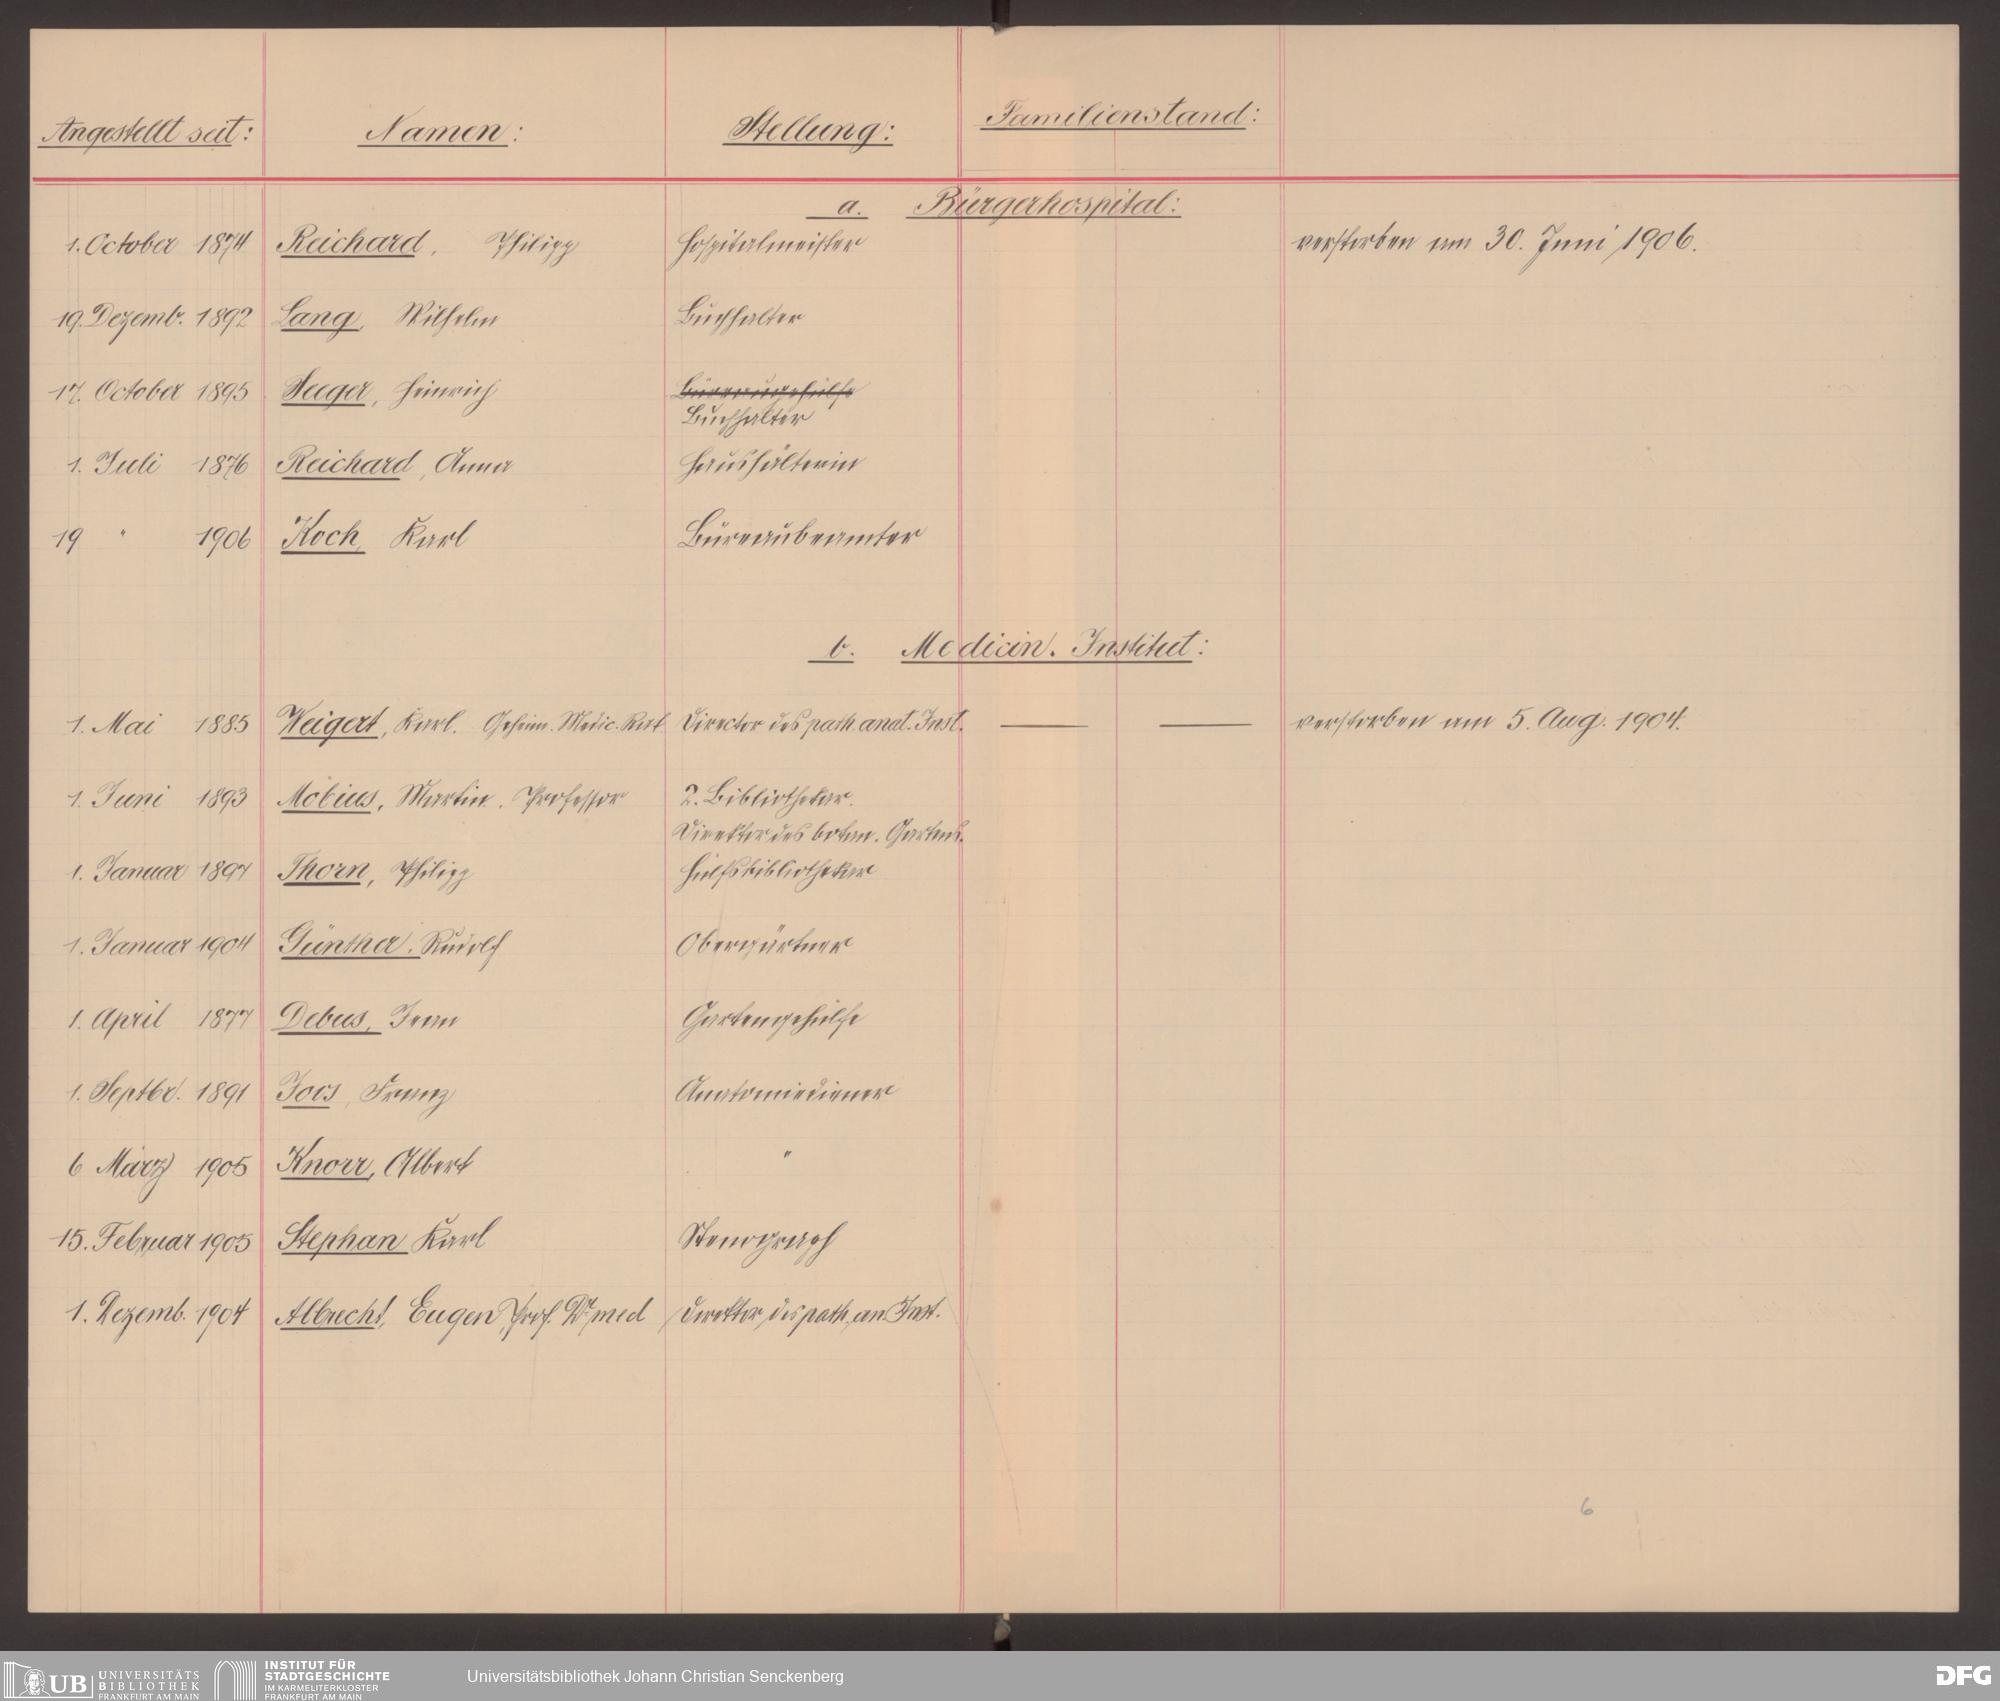 Angestellt seit: Namen: Stellung: Familienstand:
a. Bürgerhospital:
1. October 1874 Reichard, Philipp Hospitalmeister verstorben am 30. Juni 1906.
19. Dezemb. 1892 Lang, Wilhelm Buchhalter
17. October 1895 Seeger, Heinrich Büreaugehülfe
Buchhalter
1. Juli 1876 Reichard, Anna Haushälterin
19 " 1906 Koch, Karl Büreaubeamter
b. Medicin. Institut:
1. Mai 1885 Weigert, Karl. Geheim. Medic. Rat Director des path. anat. Inst. — — verstorben am 5. Aug. 1904.
1. Juni 1893 Möbius, Martin. Professor 2. Bibliothekar.
Direktor des botan. Gartens.
1. Januar 1897 Thorn, Philipp Hülfsbibliothekar
1. Januar 1904 Günther. Rudolf Obergärtner
1. April 1877 Debus, Jean Gartengehülfe
1. Septbr. 1891 Joos, Franz Anatomiediener
6 März 1905 Knorr, Albert "
15. Februar 1905 Stephan Karl Stenograph
1. Dezemb. 1904 Albrecht, Eugen, Prof. Dr med Direktor des path. an. Inst.
6
UB UNIVERSITÄTS
BIBLIOTHEK
FRANKFURT AM MAIN
INSTITUT FÜR
STADTGESCHICHTE
IM KARMELITERKLOSTER
FRANKFURT AM MAIN
Universitätsbibliothek Johann Christian Senckenberg
DFG